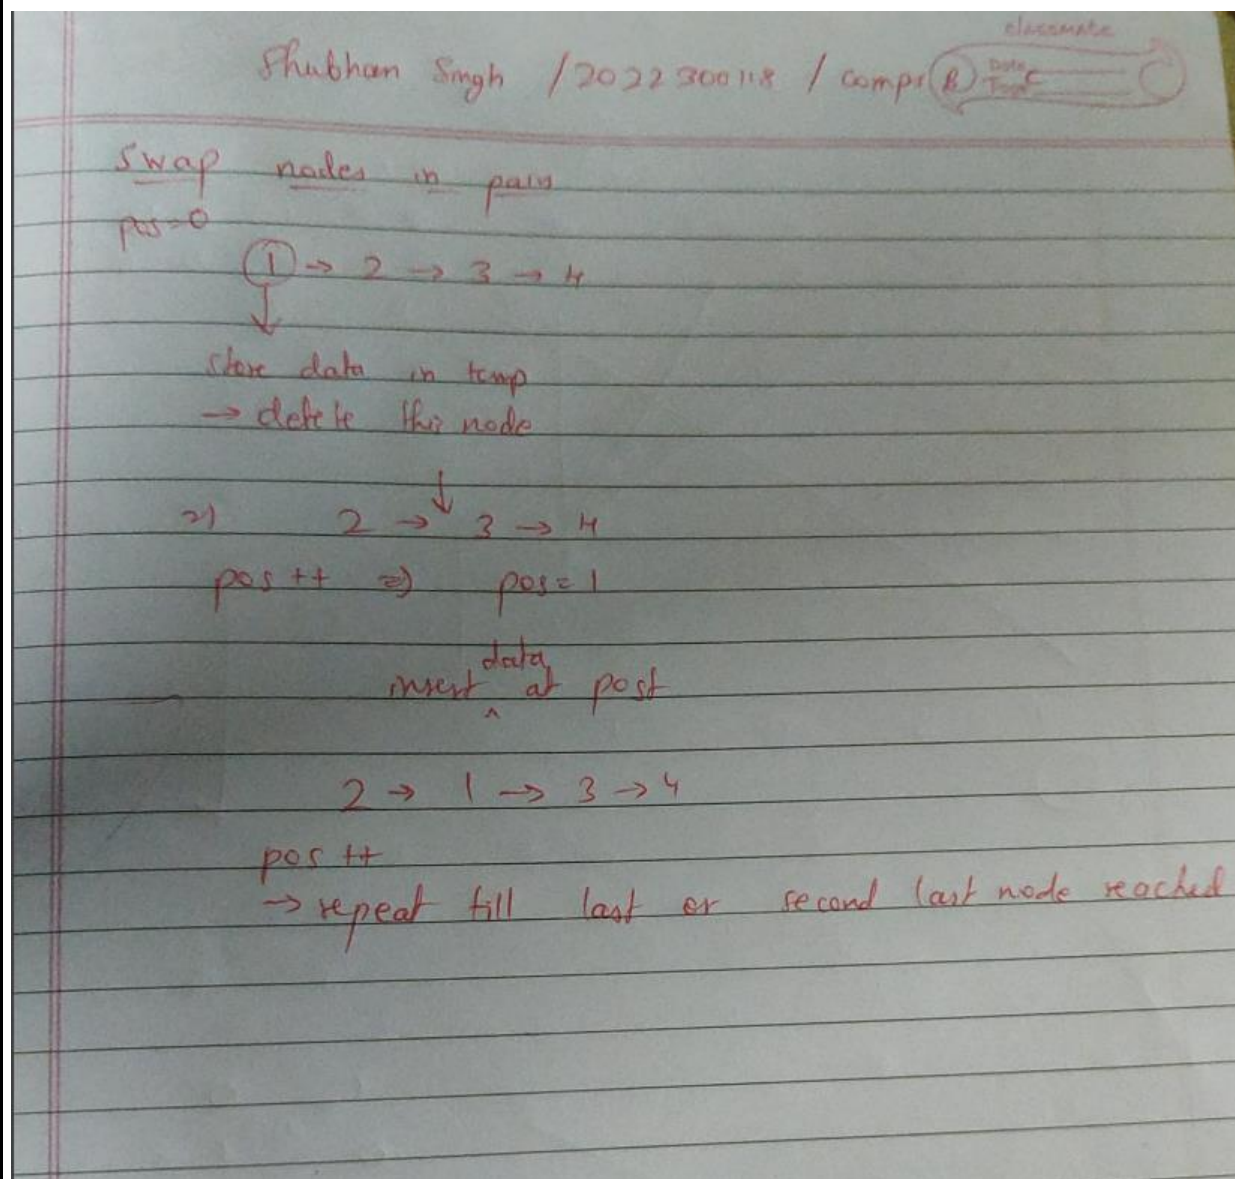 classmate
Date
Page
Shubham Singh / 2022300118 / comps (B) C
Swap nodes in pairs
pos=0
1 → 2 → 3 → 4
store data in temp
→ delete this node
2) 2 → 3 → 4
pos ++ ⇒ pos = 1
data
insert ^ at post
2 → 1 → 3 → 4
pos ++
→ repeat till last or second last node reached